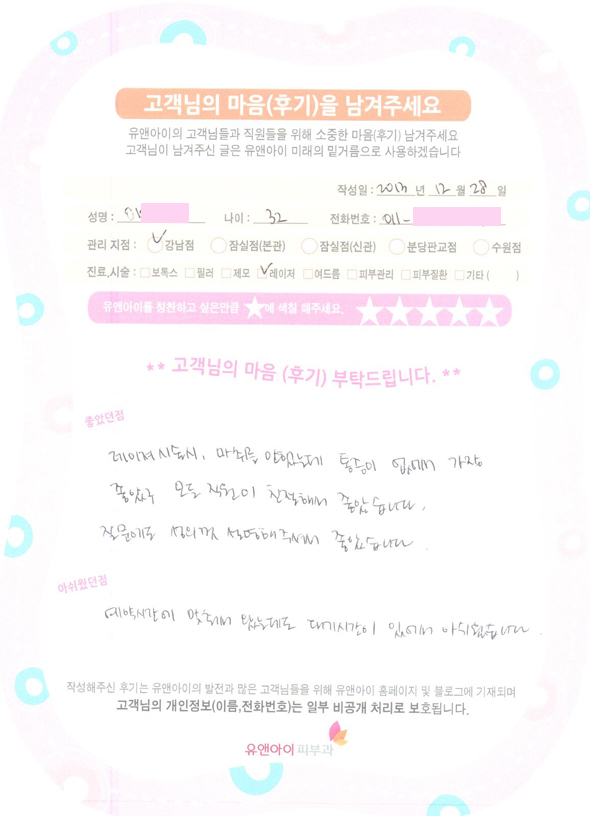 고객님의 마음(후기)을 남겨주세요
유앤아이의 고객님들과 직원들을 위해 소중한 마음(후기) 남겨주세요
고객님이 남겨주신 글은 유앤아이 미래의 밑거름으로 사용하겠습니다
작성일 : 2013 년 12 월 28 일
성명 : 나이 : 32 전화번호 : 011-
관리 지점 : 강남점 잠실점(본관) 잠실점(신관) 분당판교점 수원점
진료,시술 : 보톡스 필러 제모 레이저 여드름 피부관리 피부질환 기타 ( )
유앤아이를 칭찬하고 싶은만큼 ★에 색칠 해주세요. ★★★★★
** 고객님의 마음 (후기) 부탁드립니다. **
좋았던점
레이져시술시, 마취를 안했는데 통증이 없어서 가장
좋았구 모든 직원이 친절해서 좋았습니다.
질문에도 성의껏 설명해주셔서 좋았습니다.
아쉬웠던점
예약시간에 맞춰서 왔는데도 대기시간이 있어서 아쉬웠습니다.
작성해주신 후기는 유앤아이의 발전과 많은 고객님들을 위해 유앤아이 홈페이지 및 블로그에 기재되며
고객님의 개인정보(이름,전화번호)는 일부 비공개 처리로 보호됩니다.
유앤아이 피부과